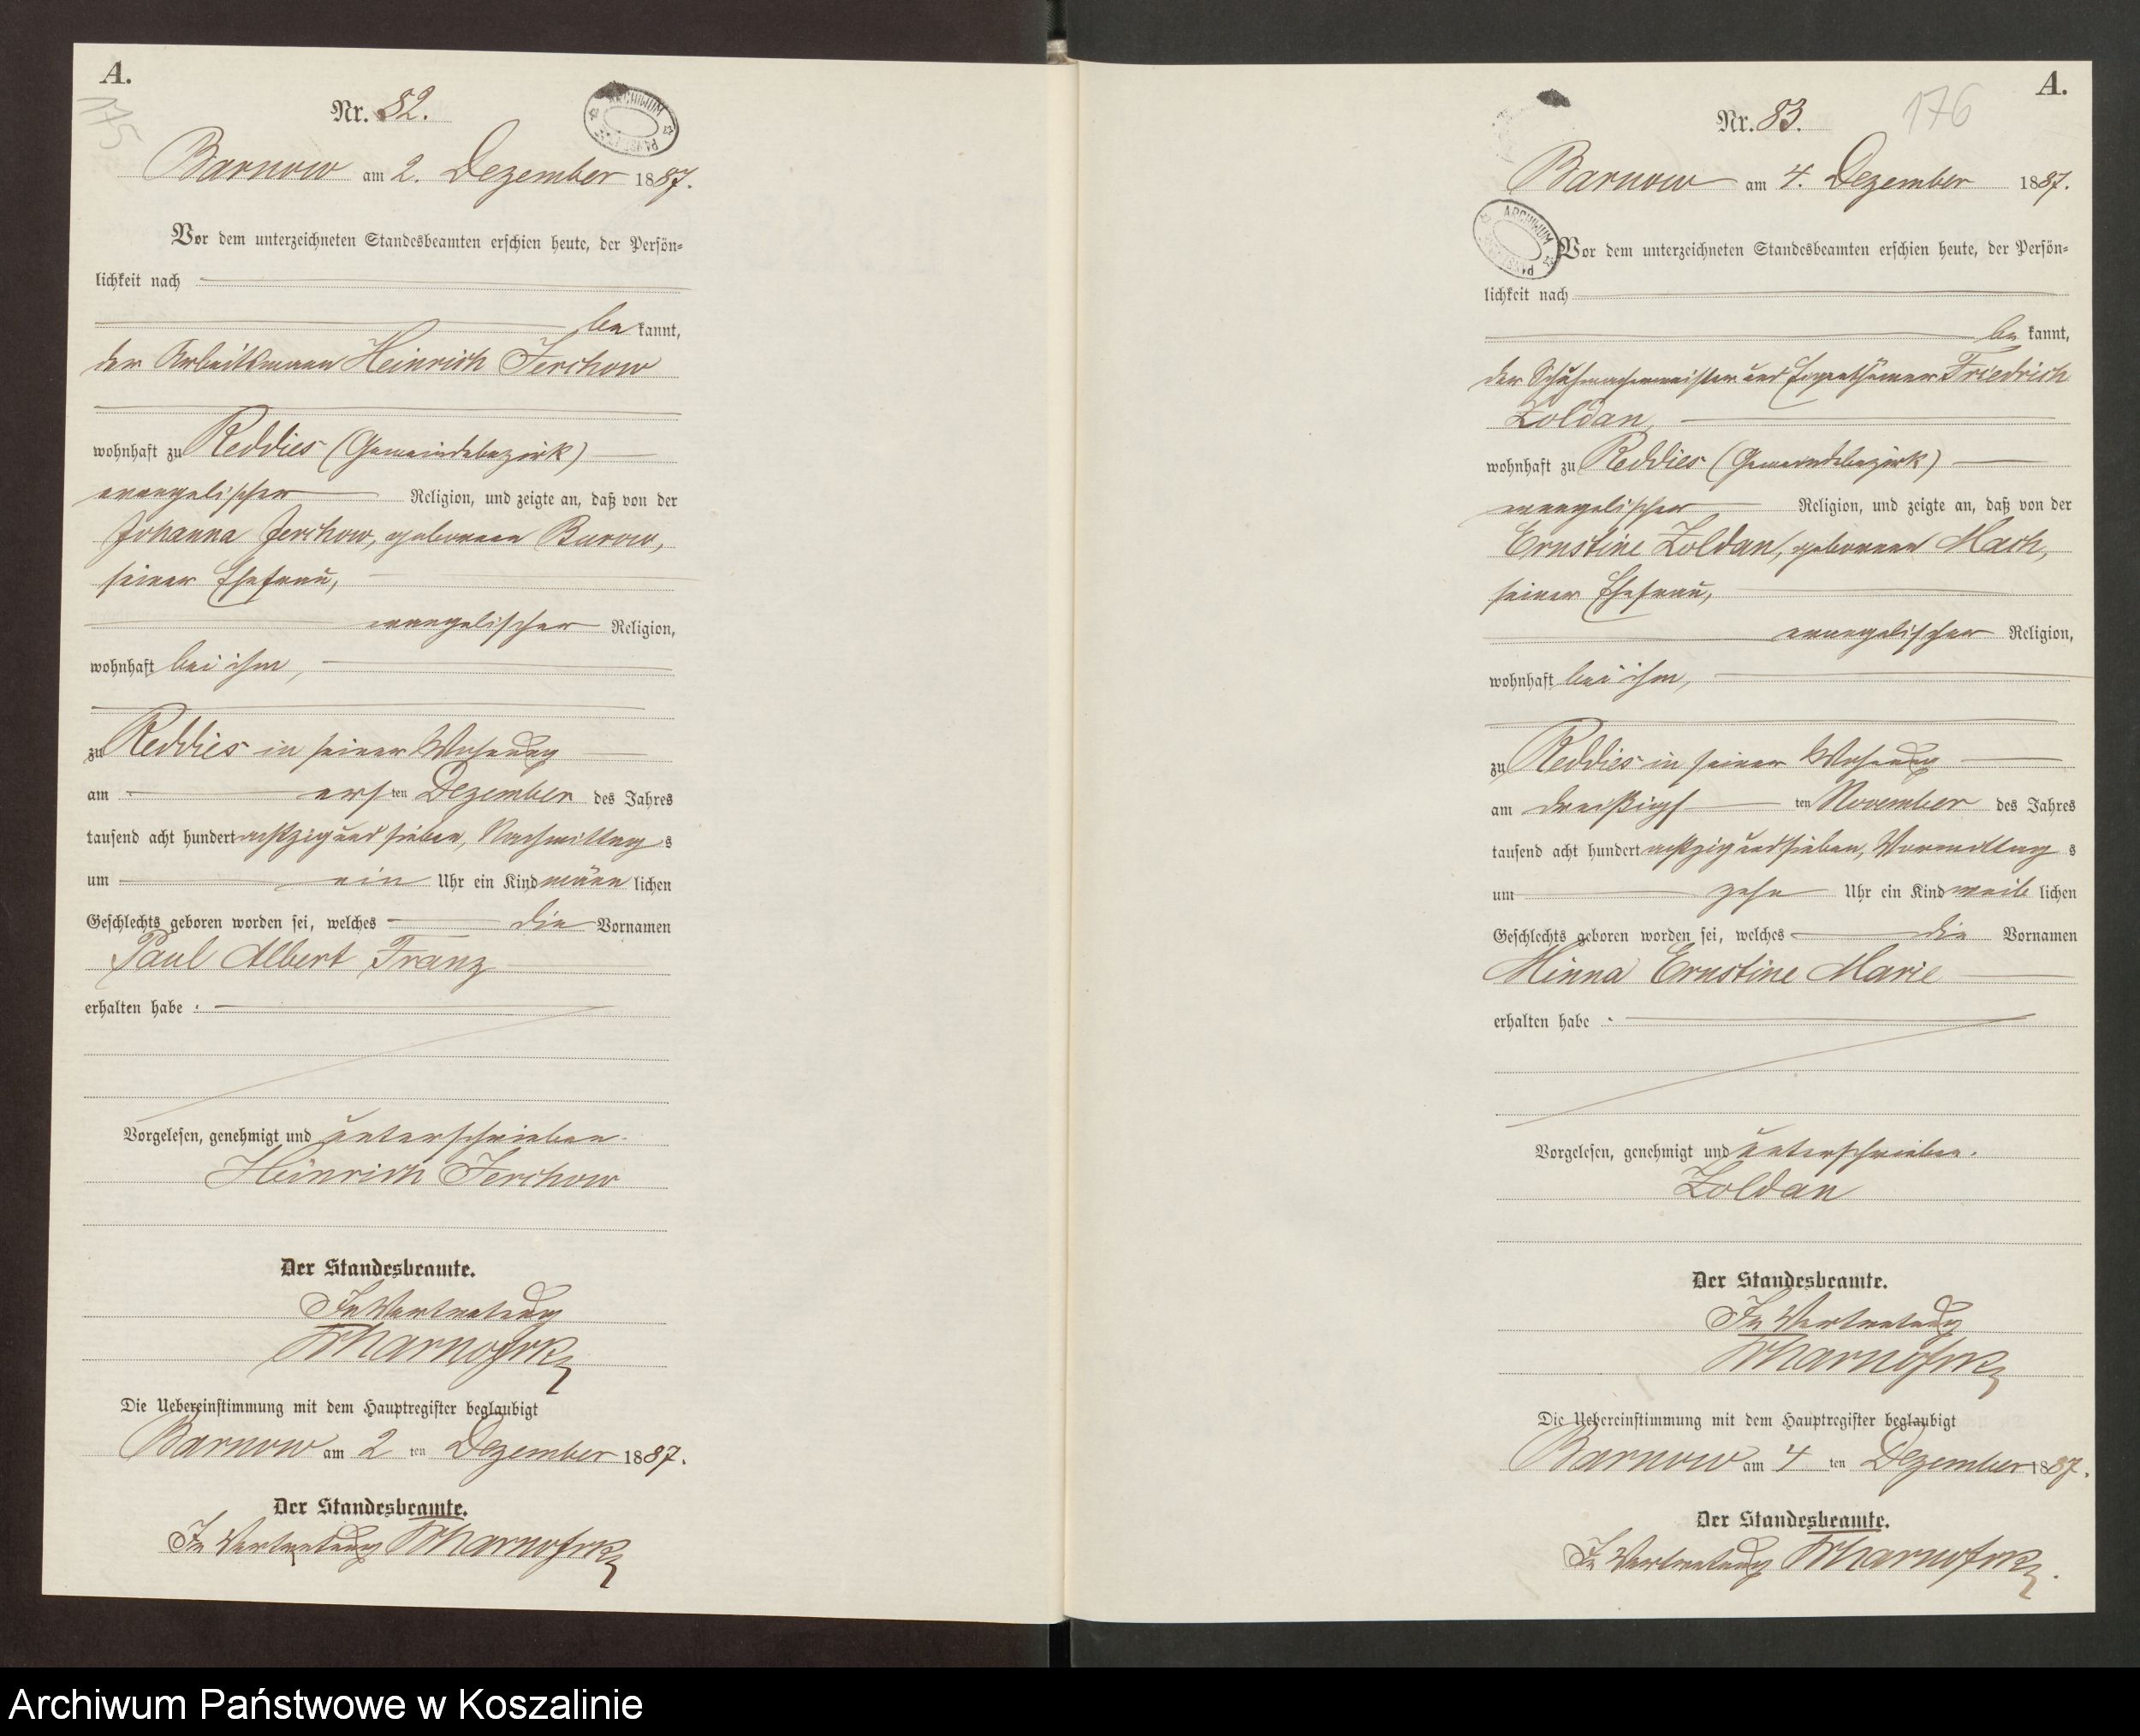 A.
175
Nr. 82.
ARCHIWUM PAŃSTW
Barnow am 2. Dezember 1887.
Vor dem unterzeichneten Standesbeamten erschien heute, der Persön-
lichkeit nach
be kannt,
der Arbeitsmann Heinrich Jerchow
wohnhaft zu Reddies (Gemeindebezirk)
evangelischer Religion, und zeigte an, daß von der
Johanna Jerchow, geborenen Burow,
seiner Ehefrau,
evangelischer Religion,
wohnhaft bei ihm,
zu Reddies in seiner Wohnung
am ersten Dezember des Jahres
tausend acht hundert achtzig und sieben, Nachmittags
um ein Uhr ein Kind männlichen
Geschlechts geboren worden sei, welches die Vornamen
Paul Albert Franz
erhalten habe.
Vorgelesen, genehmigt und unterschrieben.
Heinrich Jerchow
Der Standesbeamte.
In Vertretung
Die Uebereinstimmung mit dem Hauptregister beglaubigt
Barnow am 2 ten Dezember 1887.
Der Standesbeamte.
In Vertretung
A.
176
Nr. 83.
Barnow am 4. Dezember 1887.
ARCHIWUM PAŃSTW
Vor dem unterzeichneten Standesbeamten erschien heute, der Persön-
lichkeit nach
be kannt,
der Schuhmachermeister und Eigenthümer Friedrich
Zoldan,
wohnhaft zu Reddies (Gemeindebezirk)
evangelischer Religion, und zeigte an, daß von der
Ernstine Zoldan, geborenen Mach,
seiner Ehefrau,
evangelischer Religion,
wohnhaft bei ihm,
zu Reddies in seiner Wohnung
am dreißigsten November des Jahres
tausend acht hundert achtzig und sieben, Vormittags
um zehn Uhr ein Kind weiblichen
Geschlechts geboren worden sei, welches die Vornamen
Minna Ernstine Marie
erhalten habe.
Vorgelesen, genehmigt und unterschrieben.
Zoldan
Der Standesbeamte.
In Vertretung
Die Uebereinstimmung mit dem Hauptregister beglaubigt
Barnow am 4 ten Dezember 1887.
Der Standesbeamte.
In Vertretung
Archiwum Państwowe w Koszalinie